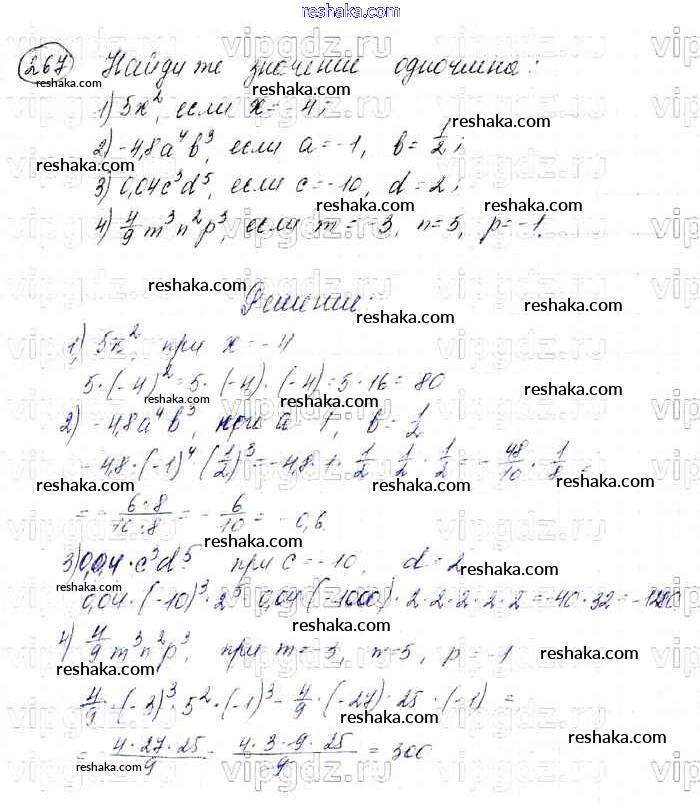 reshaka.com
267 Найдите значение одночлена:
1) 5x², если x = -4;
2) -4,8a⁴b³, если a = -1, b = 1/2;
3) 0,04c³d⁵, если c = -10, d = 2;
4) 4/9 m³n²p³, если m = -3, n = 5, p = -1.
Решение:
1) 5x², при x = -4
5·(-4)² = 5·(-4)·(-4) = 5·16 = 80
2) -4,8a⁴b³, при a = -1, b = 1/2
-4,8·(-1)⁴(1/2)³ = -4,8·1·1/2·1/2·1/2 = -48/10·1/8 =
= -6·8/10·8 = -6/10 = -0,6.
3) 0,04·c³d⁵ при c = -10, d = 2
0,04·(-10)³·2⁵ 0,04·(-1000)·2·2·2·2·2 = -40·32 = -1280
4) 4/9 m³n²p³, при m = -3, n = 5, p = -1
4/9·(-3)³·5²·(-1)³ = 4/9·(-27)·25·(-1) =
= 4·27·25/9 = 4·3·9·25/9 = 300